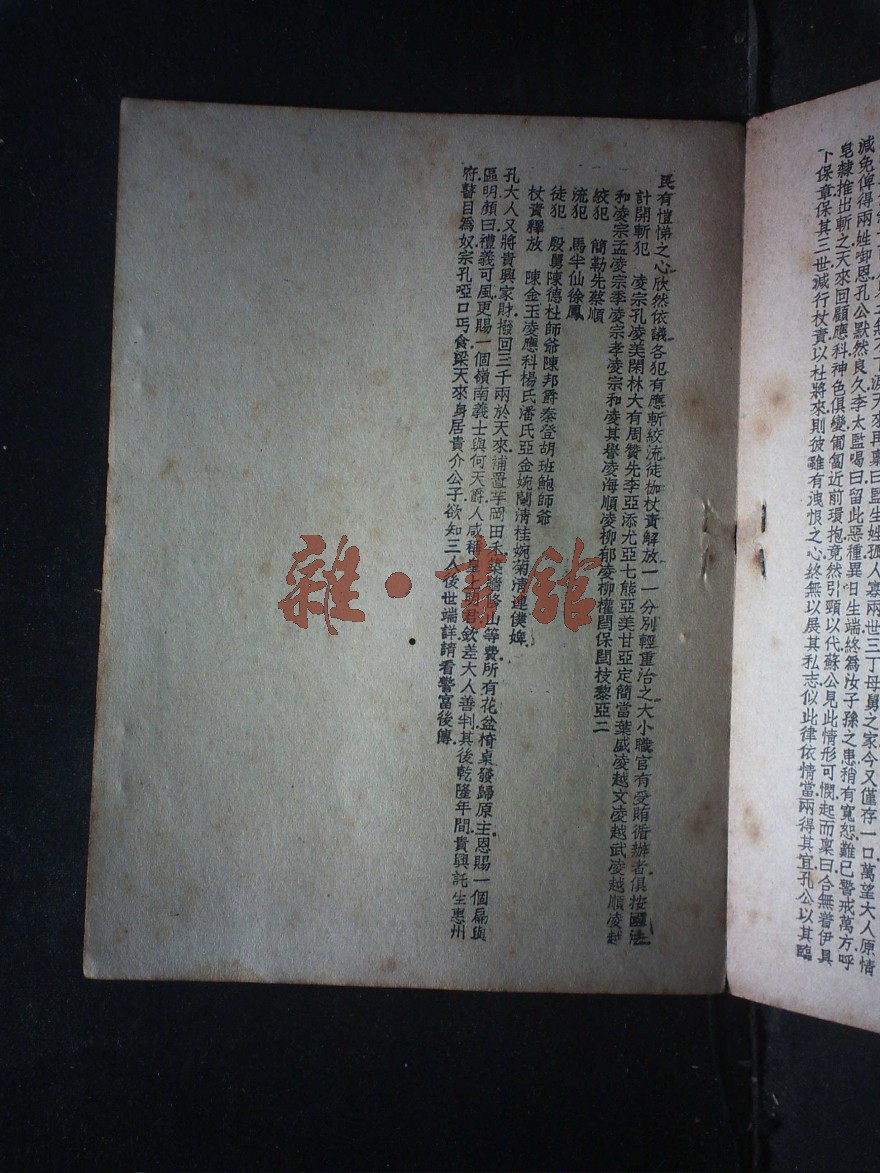 減免俾得兩姓卸恩孔公默然良久李太監喝曰留此惡種異日生端終為汝子孫之患稍有寬恕難已警戒萬方呼
皂隸推出斬之天來回顧應科神色俱變匍匐近前環抱竟然引頸以代蘇公見此情形可憫起而稟曰合無着伊具
卜保章保其三世減行杖責以杜將來則彼雖有洩恨之心終無以展其私志似此律依情當兩得其宜孔公以其臨
民有愷悌之心欣然依議各犯有應斬絞流徒枷杖責解放一一分別輕重治之大小職官有受賄循辦者俱按國法
計開斬犯 凌宗孔凌美閑林大有周贊先李亞添尤亞七熊亞美甘亞定簡當葉盛凌越文凌越武凌越順凌越
和凌宗孟凌宗季凌宗孝凌宗和凌其譽凌海順凌柳郁凌柳權閏保閏枝黎亞二
絞犯 簡勒先蔡順
流犯 馬半仙徐鳳
徒犯 殷舅陳德杜師爺陳邦爵秦登胡班鮑師爺
杖責釋放 陳金玉凌應科楊氏潘氏亞金婉蘭清桂婉菊清蓮僕婢.
孔大人又將貴興家財.撥回三千兩於天來.補置芋岡田禾築牆修山等費所有花盆椅桌發歸原主恩賜一個扁與
區明.顏曰禮義可風更賜一個嶺南義士與何天爵.人咸稱皇上明君.欽差大人善判.其後乾隆年間.貴興託生惠州
府瞽目為奴.宗孔啞口丐食.梁天來身居貴介公子.欲知三人後世端詳.請看警富後傳.
雜·書館